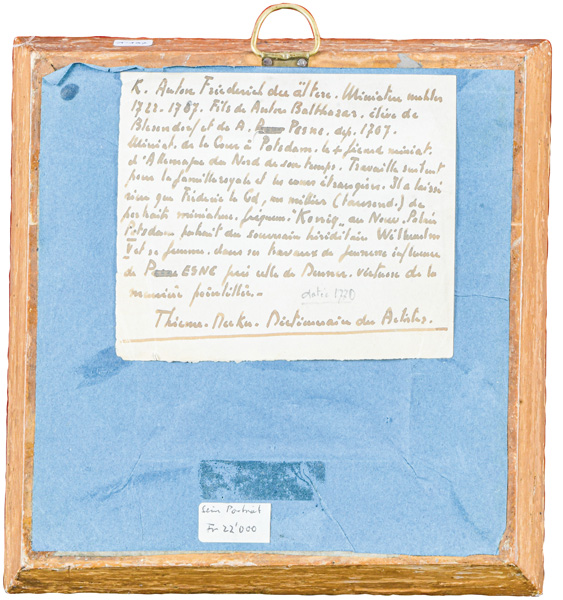 K. Anton Friederich der ältere. Miniatur mahler
1722-1787. Fils de Anton Balthasar. élève de
Blesendorf et de A. Pesne. dep. 1707.
Miniat. de la Cour à Potsdam. le + fécond miniat.
d'Allemagne du Nord de son temps. Travailla surtout
pour la famille royale et les cours étrangères. Il a laissé
rien que Fréderic le Gd, un millier (tausend.) de
portraits miniature. "König" au Neue Palais
Potsdam portrait du souverain héréditaire Wilhelm
V et sa femme. dans ses travaux de jeunesse influence
de PESNE puis celle de Denner. vertuose de la
manière pointillée..
datée 1770
Thieme. Becker. Dictionnaire des Artistes.
Sein Portrait
Fr 22'000